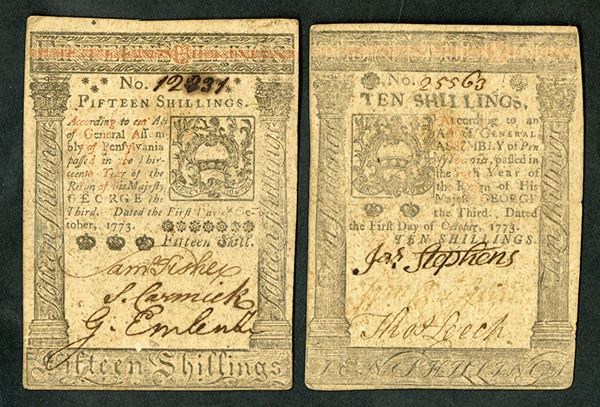 No. 12831
FIFTEEN SHILLINGS.
According to an Act
of General Assem-
bly of Pensylvania
passed in the Thir-
teenth Year of the
Reign of his Majesty
GEORGE the
Third. Dated the First Day of Oc-
tober, 1773.
Fifteen Shill.
Saml Fisher
S. Carmick
G. Emlen
Fifteen Shillings
Fifteen Shillings
Fifteen Shillings
No. 25563
TEN SHILLINGS,
According to an
Act of GENERAL
ASSEMBLY of Pen
sylvania, passed in
the Year of
the Reign of His
Majest GEORGE
the Third. Dated
the First Day of October, 1773.
TEN SHILLINGS.
Jas. Stephens
Thos Leech
TEN SHILLINGS